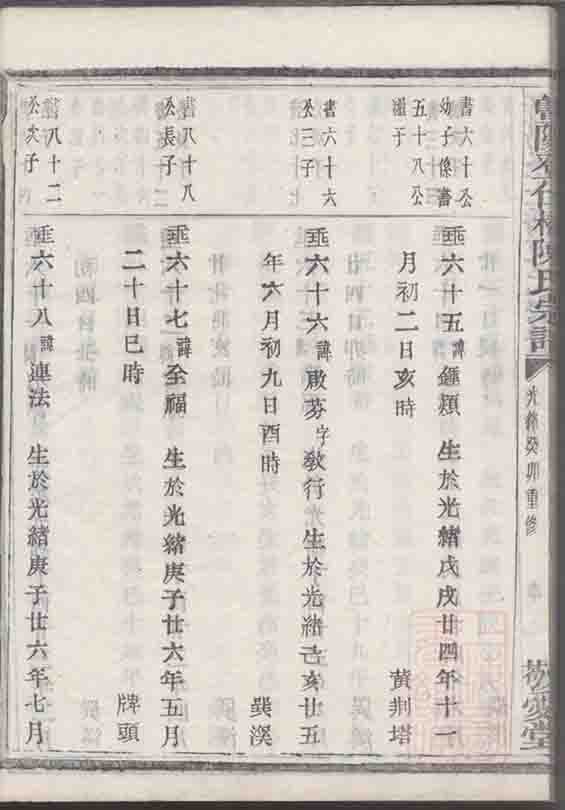 陳氏宗譜
光緒癸卯重修
敬愛堂
書六十公
幼子係書
五十八公
繼子
垂六十五諱鍾類 生於光緒戊戌廿四年十一
月初二日亥時 黄荆塔
書六十六
公三子
垂六十六諱啟芬字敎行生於光緒己亥廿五
年六月初九日酉時 巽溪
書八十八
公長子
垂六十七諱全福 生於光緒庚子廿六年五月
二十日巳時 牌頭
書八十二
公次子
垂六十八諱連法 生於光緒庚子廿六年七月